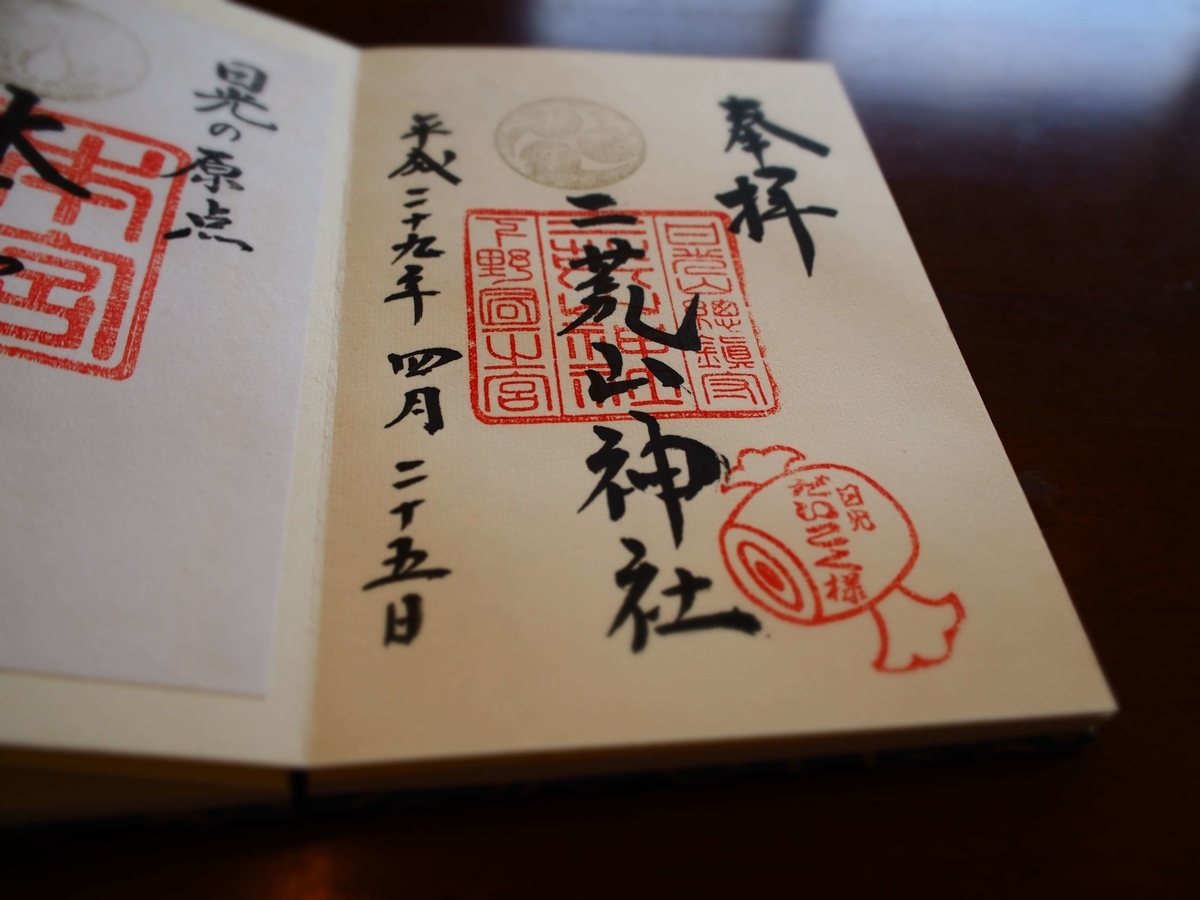 奉拝
日光総鎮守
二荒山神社
二荒山神社
下野国一之宮
日光
だいこく様
平成二十九年 四月 二十五日
日光の原点
本宮